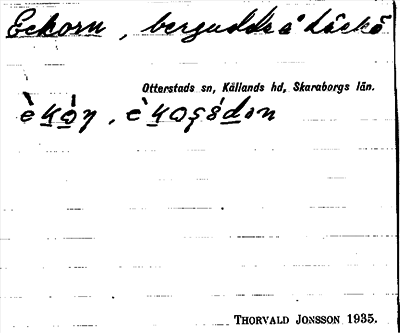 Eckorn, bergudde å Läckö
Otterstads sn, Kållands hd, Skaraborgs län.
THORVALD JONSSON 1935.